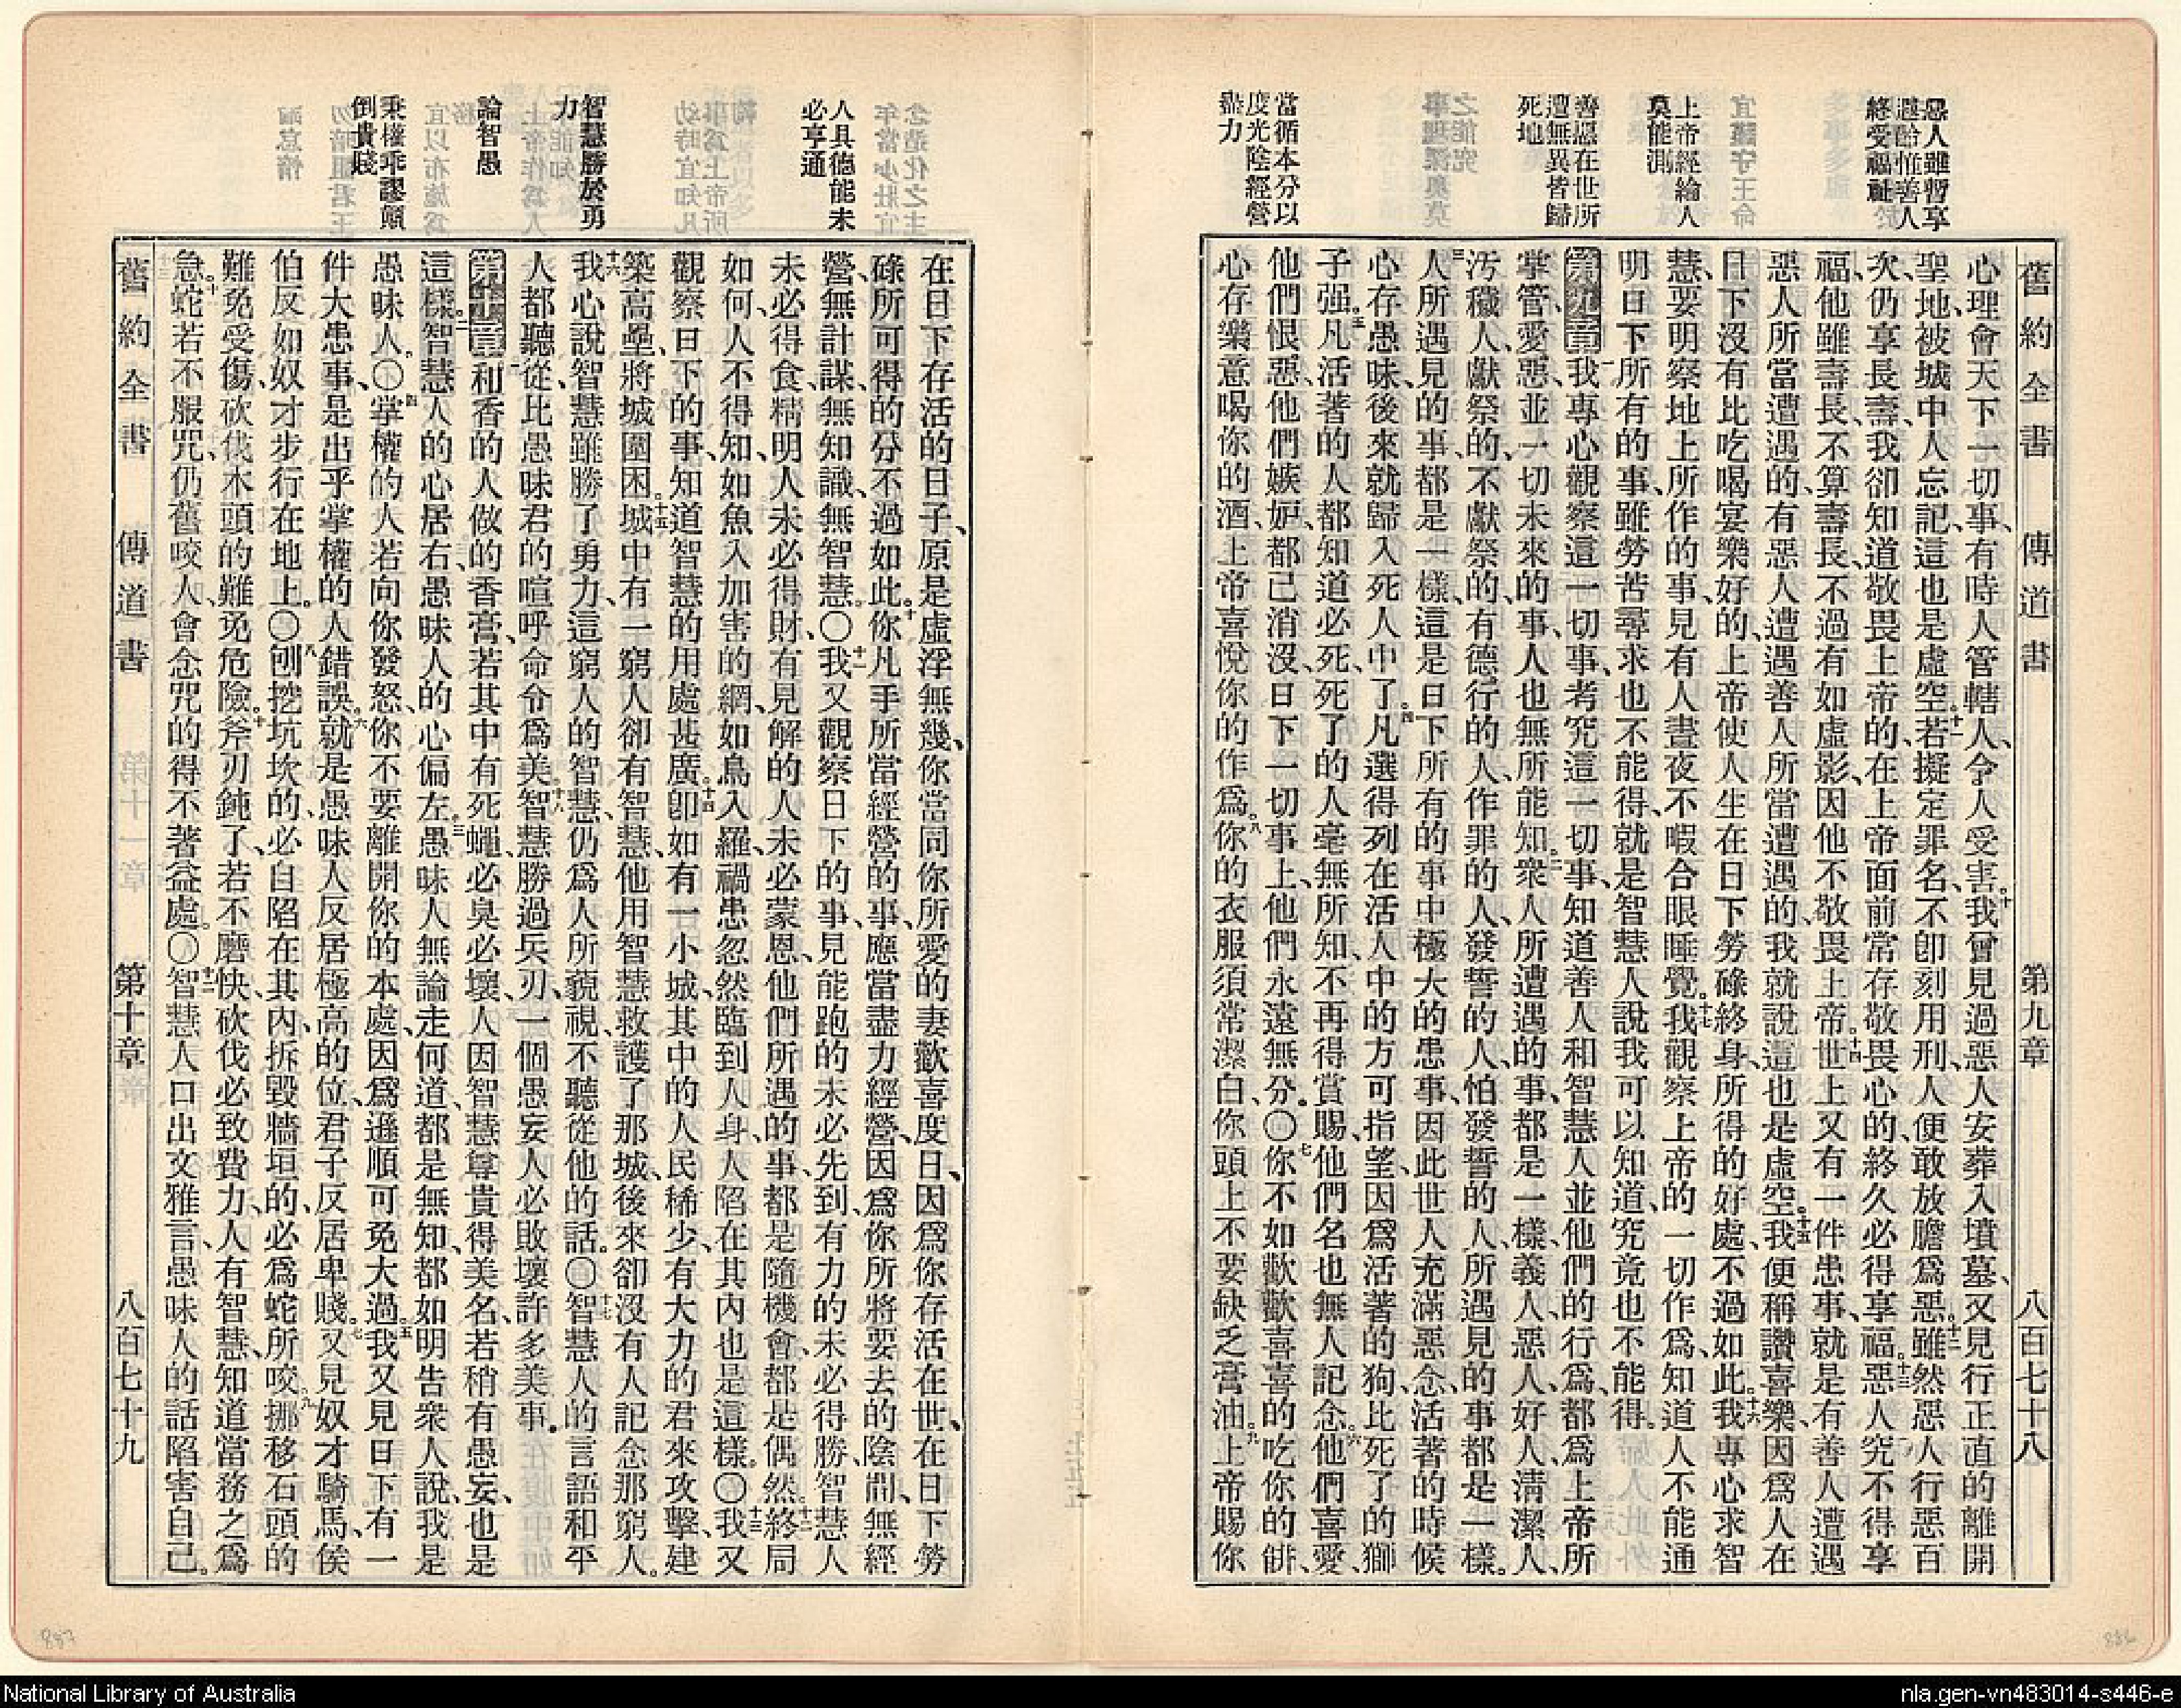 舊約全書　傳道書　第九章　八百七十八
惡人雖暫享
遐齡惟善人
終受福祉
上帝經綸人
莫能測
善惡在世所
遭無異皆歸
死地
當循本分以
度光陰經營
盡力
心理會天下一切事、有時人管轄人、令人受害。十我曾見過惡人安葬入墳墓、又見行正直的離開
聖地、被城中人忘記、這也是虛空。十一若擬定罪名、不卽刻用刑、人便敢放膽爲惡。十二雖然惡人行惡百
次、仍享長壽、我卻知道敬畏上帝的、在上帝面前常存敬畏心的、終久必得享福。十三惡人究不得享
福、他雖壽長、不算壽長、不過有如虛影、因他不敬畏上帝。十四世上又有一件患事、就是有善人遭遇
惡人所當遭遇的、有惡人遭遇善人所當遭遇的、我就說這也是虛空。十五我便稱讚喜樂、因爲人在
日下沒有比吃喝宴樂好的、上帝使人生在日下勞碌終身、所得的好處、不過如此。十六我專心求智
慧、要明察地上所作的事、見有人晝夜不暇合眼睡覺。十七我觀察上帝的一切作爲、知道人不能通
明日下所有的事、雖勞苦尋求也不能得、就是智慧人說我可以知道、究竟也不能得。
第九章 一我專心觀察這一切事、考究這一切事、知道善人和智慧人並他們的行爲、都爲上帝所
掌管、愛惡並一切未來的事、人也無所能知。二衆人所遭遇的事、都是一樣、義人、惡人、好人、淸潔人、
汚穢人、獻祭的、不獻祭的、有德行的人、作罪的人、發誓的人、怕發誓的人、所遇見的事都是一樣。
三人所遇見的事、都是一樣、這是日下所有的事中極大的患事、因此世人充滿惡念、活著的時候
心存愚昧、後來就歸入死人中了。四凡選得列在活人中的、方可指望、因爲活著的狗、比死了的獅
子强。五凡活著的人、都知道必死、死了的人毫無所知、不再得賞賜、他們名也無人記念。六他們喜愛、
他們恨惡、他們嫉妒、都已消沒、日下一切事上、他們永遠無分。〇七你不如歡歡喜喜的吃你的餠、
心存樂意喝你的酒、上帝喜悅你的作爲。八你的衣服須常潔白、你頭上不要缺乏膏油。九上帝賜你
人具德能未
必亨通
智慧勝於勇
力
論智愚
秉權乖謬顚
倒貴賤
在日下存活的日子、原是虛浮無幾、你當同你所愛的妻歡喜度日、因爲你存活在世、在日下勞
碌所可得的分、不過如此。十你凡手所當經營的事、應當盡力經營、因爲你所將要去的陰間、無經
營、無計謀、無知識、無智慧。〇十一我又觀察日下的事、見能跑的未必先到、有力的未必得勝、智慧人
未必得食、精明人未必得財、有見解的人未必蒙恩、他們所遇的事、都是隨機會、都是偶然。十二終局
如何、人不得知、如魚入加害的網、如鳥入羅、禍患忽然臨到人身、人陷在其內也是這樣。〇十三我又
觀察日下的事、知道智慧的用處甚廣。十四卽如有一小城、其中的人民稀少、有大力的君來攻擊、建
築高壘、將城圍困。十五城中有一窮人卻有智慧、他用智慧救護了那城、後來卻沒有人記念那窮人。
十六我心說、智慧雖勝了勇力、這窮人的智慧、仍爲人所藐視、不聽從他的話。〇十七智慧人的言語和平
人都聽從、比愚昧君的喧呼命令爲美。十八智慧勝過兵刃、一個愚妄人必敗壞許多美事。
第十章 一和香的人做的香膏、若其中有死蠅、必臭必壞、人因智慧尊貴得美名、若稍有愚妄、也是
這樣。二智慧人的心居右、愚昧人的心偏左。三愚昧人無論走何道、都是無知、都如明告衆人說、我是
愚昧人。〇四掌權的人若向你發怒、你不要離開你的本處、因爲遜順可免大過。五我又見日下有一
件大患事、是出乎掌權的人錯誤。六就是愚昧人反居極高的位、君子反居卑賤。七又見奴才騎馬、侯
伯反如奴才步行在地上。〇八刨挖坑坎的、必自陷在其內、拆毀牆垣的、必爲蛇所咬。九挪移石頭的
難免受傷、砍伐木頭的難免危險。十斧刃鈍了、若不磨快、砍伐必致費力、人有智慧、知道當務之爲
急。十一蛇若不服咒、仍舊咬人、會念咒的得不著益處。〇十二智慧人口出文雅言、愚昧人的話陷害自己。
舊約全書　傳道書　第十章　八百七十九
887
886
National Library of Australia
nla.gen-vn483014-s446-e